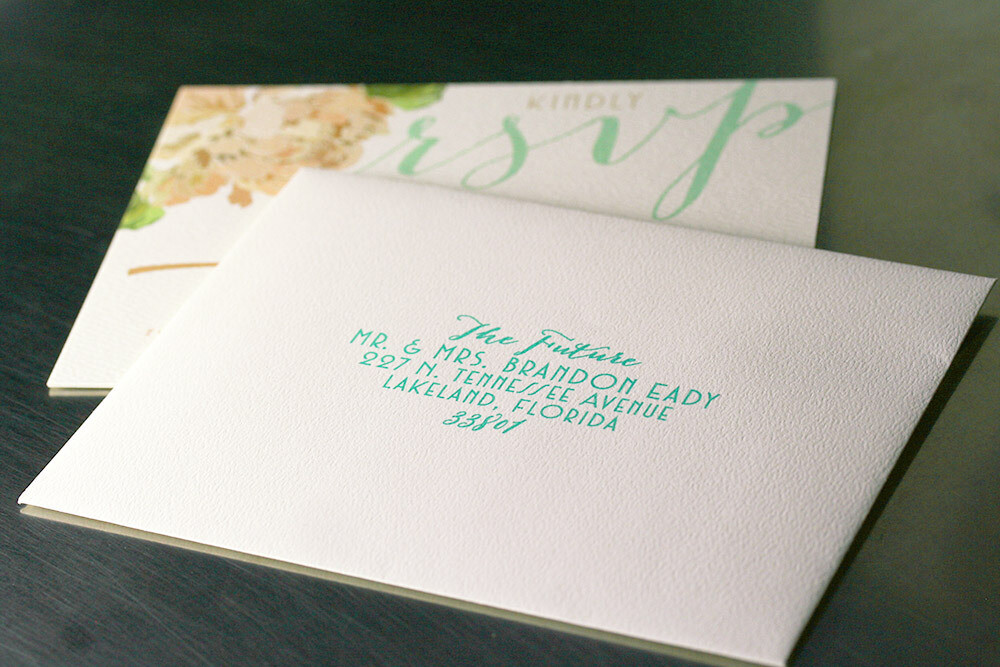 KINDLY
rsvp
The Future
MR. & MRS. BRANDON EADY
227 N. TENNESSEE AVENUE
LAKELAND, FLORIDA
33801